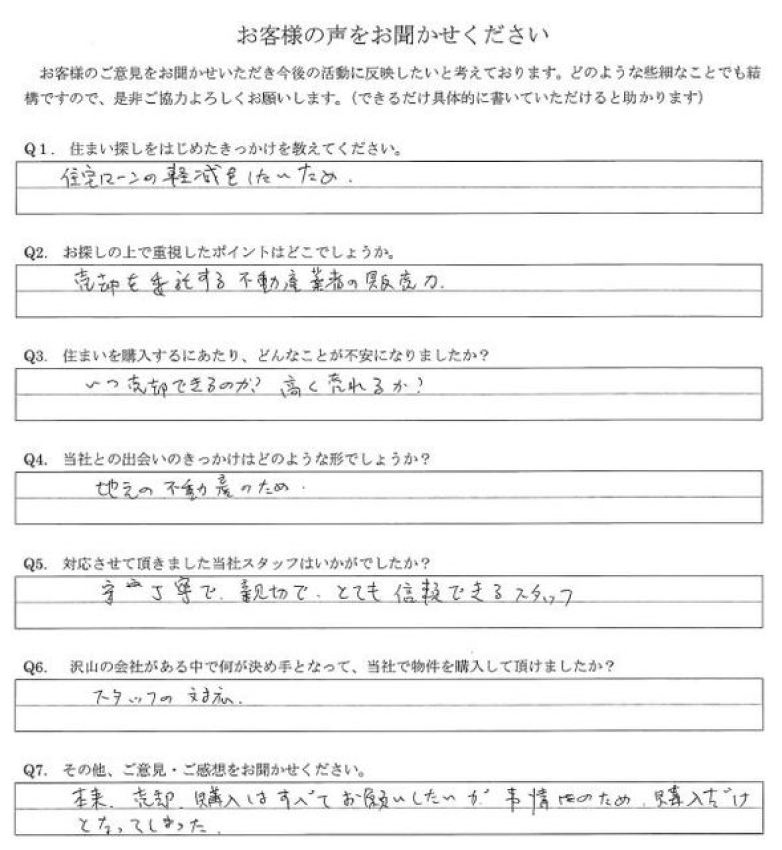 お客様の声をお聞かせください
お客様のご意見をお聞かせいただき今後の活動に反映したいと考えております。どのような些細なことでも結
構ですので、是非ご協力よろしくお願いします。（できるだけ具体的に書いていただけると助かります）
Q1. 住まい探しをはじめたきっかけを教えてください。
住宅ローンの軽減をしたいため.
Q2. お探しの上で重視したポイントはどこでしょうか。
売却を委託する不動産業者の販売力.
Q3. 住まいを購入するにあたり、どんなことが不安になりましたか？
いつ売却できるのか? 高く売れるか?
Q4. 当社との出会いのきっかけはどのような形でしょうか？
地元の不動産のため.
Q5. 対応させて頂きました当社スタッフはいかがでしたか？
丁寧で、親切で、とても信頼できるスタッフ
Q6. 沢山の会社がある中で何が決め手となって、当社で物件を購入して頂けましたか？
スタッフの対応.
Q7. その他、ご意見・ご感想をお聞かせください。
本来、売却、購入はすべてお願いしたいが事情のため、購入だけ
となってしまった.